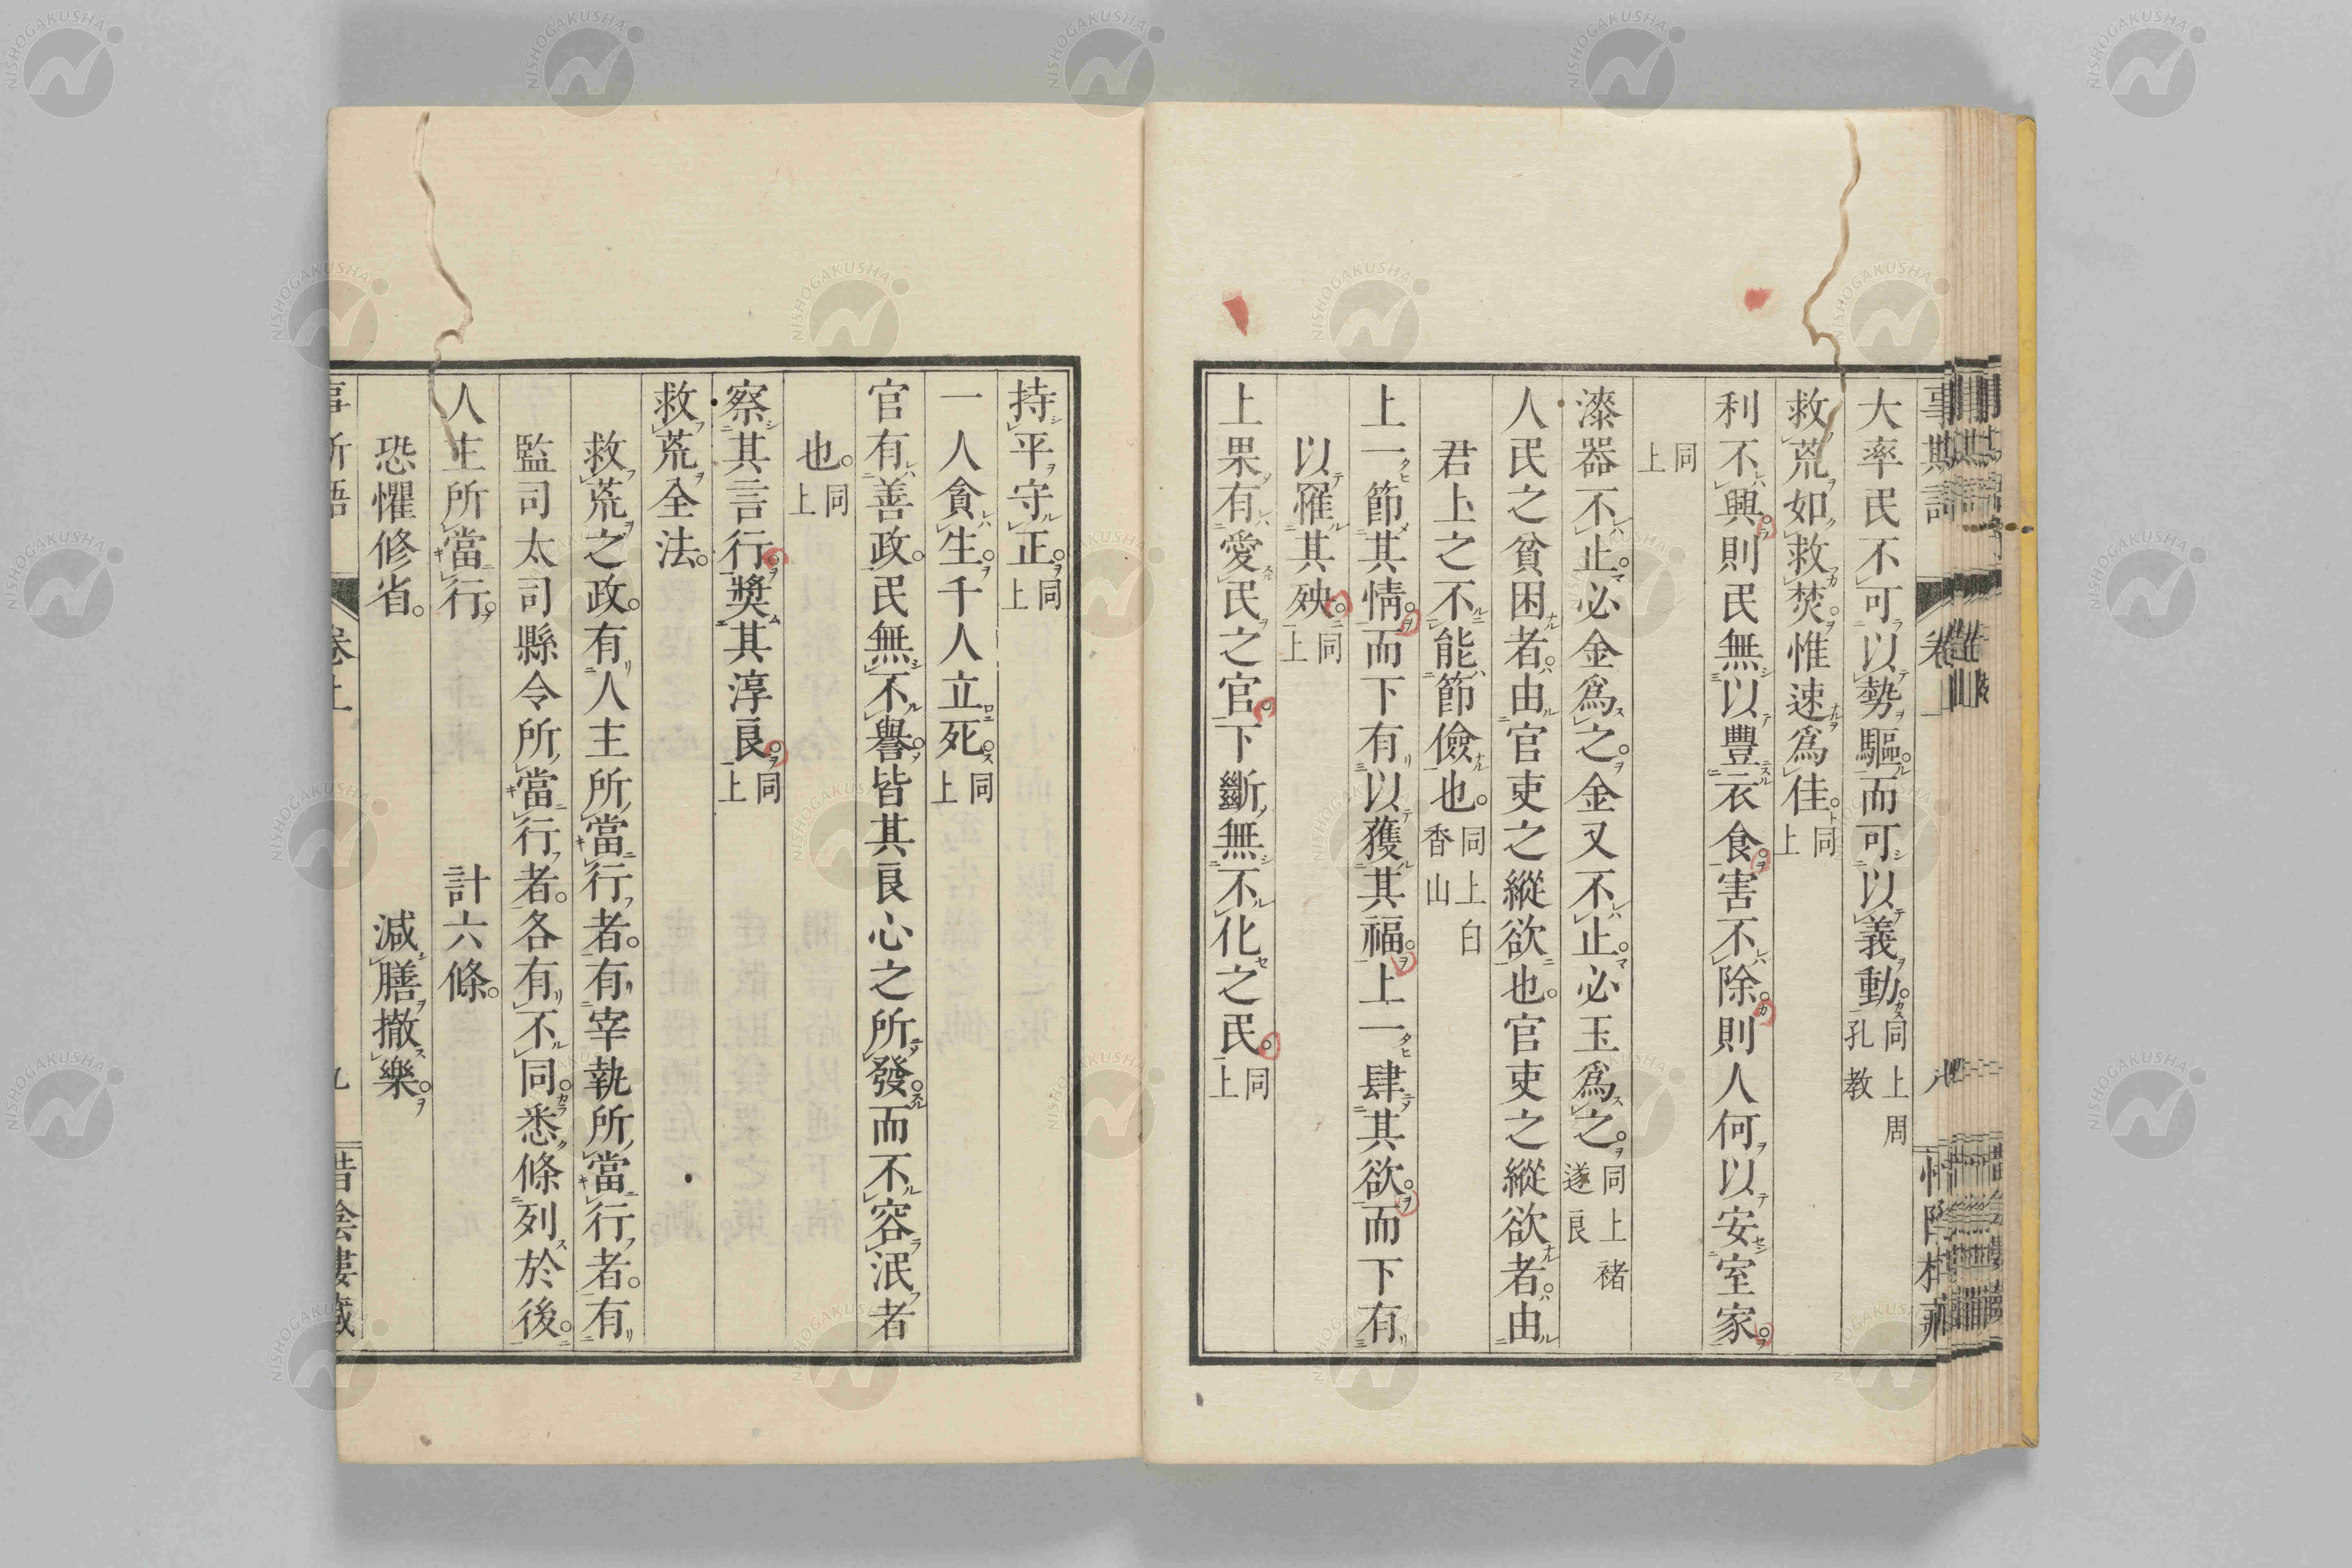 大率民不可以勢驅。而可以義動。同上周孔教
救荒如救焚。惟速爲佳。同上
利不興。則民無以豐衣食。害不除。則人何以安室家。
同上
漆器不止。必金爲之。金又不止。必玉爲之。同上褚遂良
人民之貧困者。由官吏之縱欲也。官吏之縱欲者。由
君上之不能節儉也。同上白香山
上一節其情。而下有以獲其福。上一肆其欲。而下有
以罹其殃。同上
上果有愛民之官。下斷無不化之民。同上
持平守正。同上
一人貪生。千人立死。同上
官有善政。民無不譽。皆其良心之所發。而不容泯者
也。同上
察其言行。獎其淳良。同上
救荒全法。
救荒之政。有人主所當行者。有宰執所當行者。有
監司太司縣令所當行者。各有不同。悉條列於後。
人主所當行。計六條。
恐懼修省。減膳撤樂。
卷上
九
惜陰樓藏
NISHOGAKUSHA